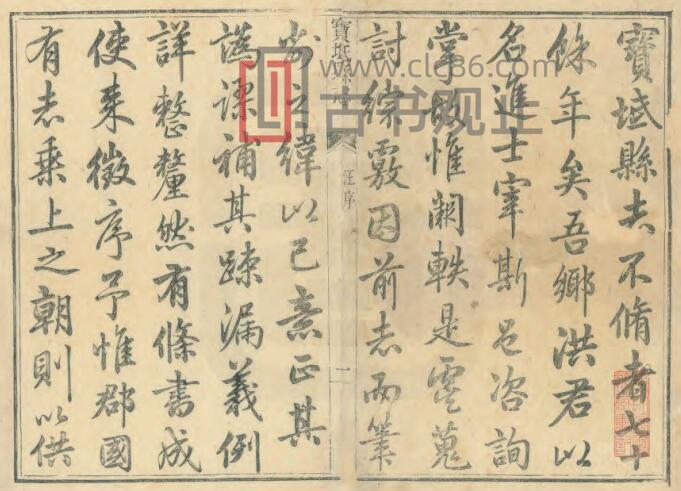 寶坻縣志不脩者七十
餘年矣吾鄉洪君以
名進士宰斯邑咨詢
掌故惟闕軼是虞蒐
討綜覈因前志而筆
寶坻縣志
汪序
一
削之緯以己意正其
譌謬補其疎漏義例
詳整釐然有條書成
使来徵序予惟郡國
有志乗上之朝則以供
www.clg86.com
古书观止